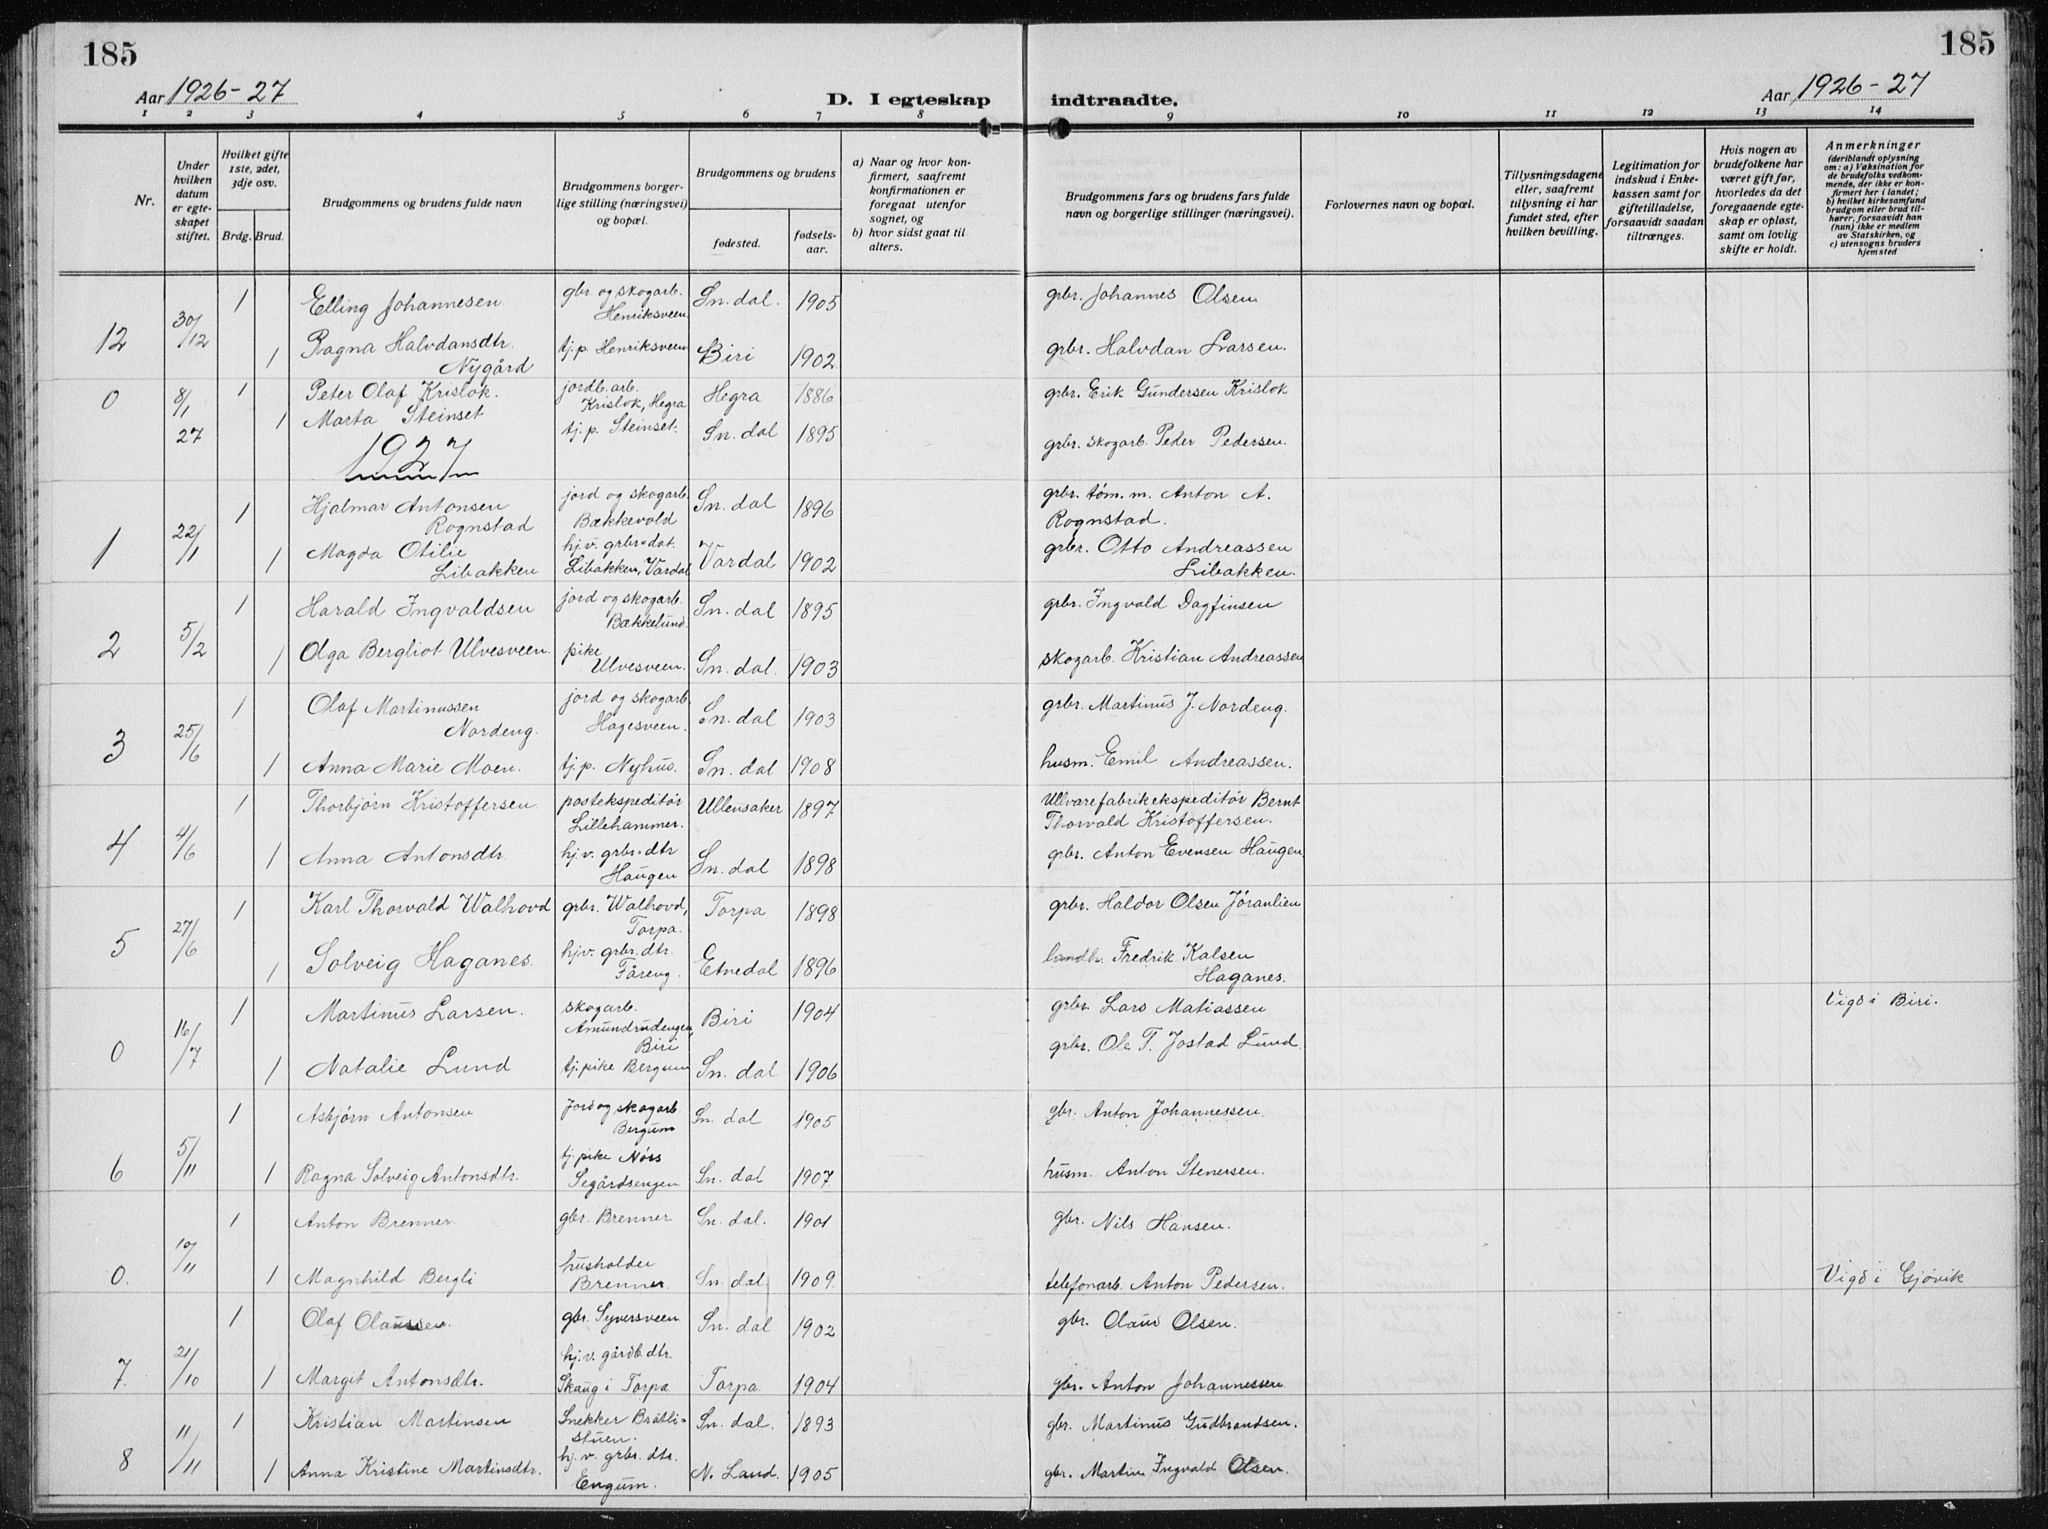 185
185
Aar 1926-27
D. I egteskap
indtraadte.
Aar 1926-27
1 2 3 4 5 6 7 8 9 10 11 12 13 14
Nr.
Under
hvilken
datum
er egte-
skapet
stiftet.
Hvilket gifte
1ste, 2det,
3dje osv.
Brdg. Brud.
Brudgommens og brudens fulde navn
Brudgommens borger-
lige stilling (næringsvei)
og bopæl.
Brudgommens og brudens
fødested.
fødsels-
aar.
a) Naar og hvor kon-
firmert, saafremt
konfirmationen er
foregaat utenfor
sognet, og
b) hvor sidst gaat til
alters.
Brudgommens fars og brudens fars fulde
navn og borgerlige stillinger (næringsvei).
Forlovernes navn og bopæl.
Tillysningsdagene
eller, saafremt
tillysning ei har
fundet sted, efter
hvilken bevilling.
Legitimation for
indskud i Enke-
kassen samt for
giftetilladelse,
forsaavidt saadan
tiltrænges.
Hvis nogen av
brudefolkene har
været gift før,
hvorledes da det
foregaaende egte-
skap er opløst,
samt om lovlig
skifte er holdt.
Anmerkninger
(deriblandt oplysning
om: a) Vaksination for
de brudefolks vedkom-
mende, der ikke er kon-
firmert her i landet;
b) hvilket kirkesamfund
brudgom eller brud til-
hører, forsaavidt han
(hun) ikke er medlem
av Statskirken, og
c) utensogns bruders
hjemsted
12 30/12
1 Elling Johannesen gbr. og skogarb. Henriksveen Sn. dal. 1905 grbr. Johannes Olsen
1 Ragna Halvdansdtr. Nygård tj.p. Henriksveen Biri 1902 grbr. Halvdan Larsen.
0 8/1 27
1 Peter Olaf Krislok. jordb. arb. Krislok, Hegra Hegra 1886 grbr. Erik Gundersen Krislok
1 Marta Steinset tj.p. Steinset. Sn. dal 1895 grbr. skogarb. Peder Pedersen.
1927
1 22/1
1 Hjalmar Antonsen Rognstad jord og skogarb. Bækkevold Sn. dal 1896 grbr. tøm. m. Anton A. Rognstad.
1 Magda Otilie Libakken hj.v. grbr-dat. Libakken, Vardal Vardal 1902 grbr. Otto Andreassen Libakken.
2 5/2
1 Harald Ingvaldsen jord og skogarb. Bækkelund. Sn. dal 1895 grbr. Ingvald Dagfinsen
1 Olga Bergliot Ulvesveen. pike Ulvesveen. Sn. dal. 1903 skogarb. Kristian Andreassen
3 25/6
1 Olaf Martinussen Nordeng. jord og skogarb. Hagesveen. Sn. dal 1903 grbr. Martinus J. Nordeng.
1 Anna Marie Moen. tj.p. Nyhus. Sn. dal 1908 husm. Emil Andreassen.
4 4/6
1 Thorbjørn Kristoffersen. postekspeditør Lillehammer. Ullensaker 1897 Ullvarefabrikekspeditør Bernt Thorvald Kristoffersen.
1 Anna Antonsdtr. hj.v. grbr-dtr Haugen Sn. dal 1898 grbr. Anton Evensen Haugen
5 27/6
1 Karl Thorvald Walhovd grbr. Walhovd, Torpa. Torpa 1898 grbr. Haldor Olsen Jøranlien
1 Solveig Haganes. hj.v. grbr. dtr. Fåreng. Etnedal 1896 landbr. Fredrik Kalsen Haganes.
0 16/7
1 Martinus Larsen. skogarb. Amundrudengen, Biri Biri 1904 grbr. Lars Matiassen Vigd i Biri.
1 Natalie Lund tj. pike Bergum Sn. dal 1906 grbr. Ole T. Jostad Lund.
6 5/11
1 Asbjørn Antonsen Jord og skogarb Bergum Sn. dal 1905 gbr. Anton Johannessen.
1 Ragna Solveig Antonsdtr. tj. pike Nørs Segårdsengen Sn. dal 1907 husm. Anton Stenersen.
0. 10/11
1 Anton Brenner. gbr. Brenner Sn. dal. 1901 gbr. Nils Hansen.
1 Magnhild Bergli husholder Brenner Sn. dal 1909. telefonarb. Anton Pedersen. Vigd i Gjøvik
7. 21/10
1 Olaf Olaussen. gbr. Syversveen Sn. dal 1902 gbr. Olaus Olsen.
1 Margit Antonsdtr. hj.v. gårdb. dtr. Skaug i Torpa Torpa 1904 gbr. Anton Johannessen
8 11/11
1 Kristian Martinsen Snekker Bråtli-stuen. Sn. dal. 1893 gbr. Martinus Gudbrandsen.
1 Anna Kristine Martinsdtr. hj. v. grbr. dtr. Engum. N. Land. 1905 gbr. Martin Ingvald Olsen.